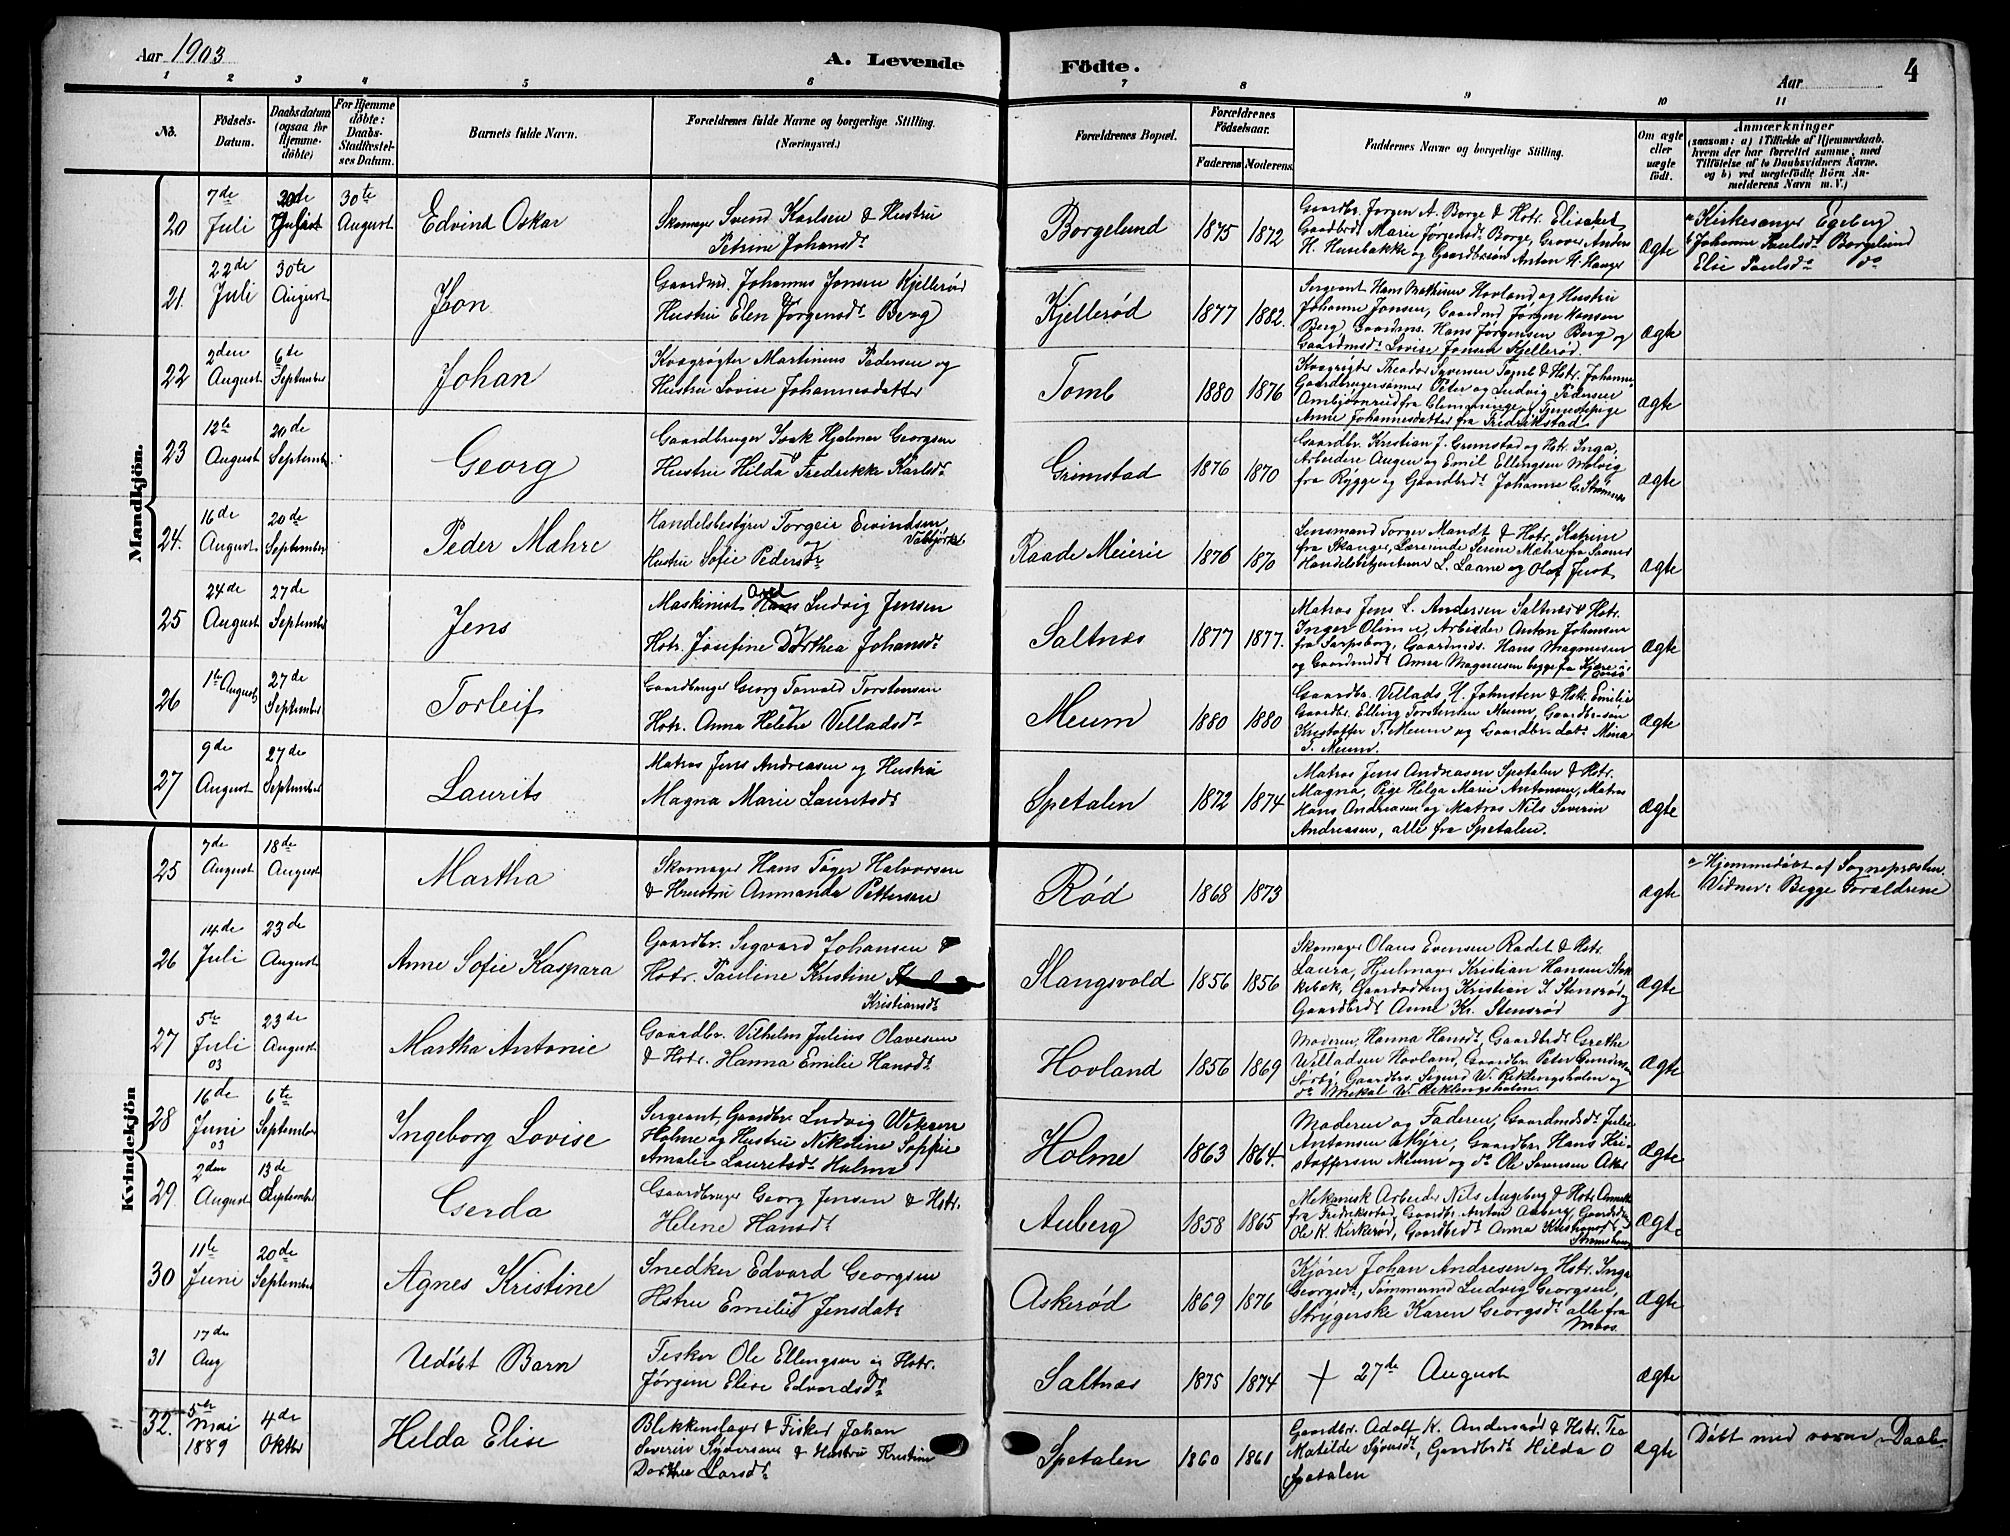 Aar 1903
A. Levende Födte.
Aar
4
1 2 3 4 5 6 7 8 9 10 11
No. Födsels-Datum. Daabsdatum (ogsaa for Hjemmedöbte) For Hjemmedöbte: Daabs-Stadfæstelses Datum. Barnets fulde Navn. Forældrenes fulde Navne og borgerlige Stilling. (Næringsvei.) Forældrenes Bopæl. Forældrenes Födselsaar. Faderens Moderens Faddernes Navne og borgerlige Stilling. Om ægte eller uægte født. Anmærkninger (saasom: a) i Tilfælde af Hjemmedaab, hvem der har forrettet samme, med Tilföielse af to Daabsvidners Navne, og b) ved uægtefödte Börn Anmelderens Navn m. V.)
Mandkjön.
20 7de Juli 30te August Edvind Oskar
Skomager Svend Karlsen & Hustru
Petrine Johansdt
Borgelund 1875 1872
Gaardbr. Jørgen A. Borge & Hstr. Elisabet
Gaardbrd. Marie Jørgensdt Borge, Graver Anders
H. Husebakke og Gaardbrsøn Anton H. Hauger
ægte
Kirkesanger Egeberg
Johanne Paulsdt Borgelund
Else Paulsdt do
21 22de Juli 30te August Jon
Gaardmd. Johannes Jonsen Kjellerød
Hustru Elen Jørgensdt Berg
Kjellerød 1877 1882.
Sergeant Hans Mathisen Hovland og Hustru
Johanne Jonsen, Gaardmd Jørgen Hansen
Berg, Gaardms. Hans Jørgensen Berg og
Gaardmdt Lovise Jonsen Kjellerød.
ægte
22 2den August 6te September Johan
Kvægrøgter Martinius Pedersen og
Hustru Lovise Johannesdatter
Tomb 1880 1876
Kvægrøgter Theodor Syversen Tomb & Hstr. Johanne
Gaardbrugersønner Peter og Ludvig Pedersen
fra Tjenestepige
Anne Johannesdatter fra Fredrikstad
ægte
23 12te August 20de September Georg
Gaardbruger Isak Hjalmar Georgsen
Hustru Hilda Fredrikke Karlsdt
Grimstad 1876 1870
Gaardbr. Kristian J. Grimstad og Hstr. Inga,
Arbeidere August og Emil Ellingsen Molvig
fra Rygge og Gaardbrdt Johanne G. Strømnes
ægte
24. 16de August 20de September Peder Mahre
Handelsbestyrer Torgeir Eivindsen
og
Hustru Sofie Pedersdtr
Raade Meierie 1876 1870
Lensmand Torger Mandt & Hstr. Katrine
fra Skanger, Lærerinde Serine Mæhre fra
Handelsbetjentene L. Laane og Olaf Just
ægte
25 24de August 27de September Jens
Maskinist Axel Ludvig Jensen
Hstr. Josefine Dorthea Johansdt
Saltnæs 1877 1877.
Matros Jens L. Andersen Saltnæs & Hstr.
Inger Oline, Arbeider Anton Johansen
fra Sarpsborg, Gaardmds. Hans Magnussen
og Gaardmdt Anna Magnussen begge fra Kjære i Onsø
ægte
26 1ste August 27de September Torleif
Gaardbruger Georg Torvald Torstensen
Hstr. Anna Helene Velladsdt
Meum 1880 1880
Gaardbr. Vellads H. Johnsten & Hstr. Emilie
Gaardbr. Elling Torstensen Meum, Gaardbrsøn
Kristoffer T. Meum og Gaardbr. datr Mina
T. Meum.
ægte
27 9de August 27de September Laurits
Matros Jens Andreasen og Hustru
Magna Marie Lauritsdt
Spetalen 1872 1874
Matros Jens Andreasen Spetalen & Hstr.
Magna, Pige Helga Marie Antonsen, Matros
Hans Andreasen og Matros Nils Severin
Andreasen, alle fra Spetalen.
ægte
Kvindekjön
25 7de August 18de August Martha
Skomager Hans Tøger Halvorsen
& Hustru Ammanda Pettersen
Rød 1868 1873
ægte
Hjemmedøbt af Sognepresten.
Vidner: Begge Forældrene
26 14de Juli 23de August Anne Sofie Kaspara
Gaardbr. Segvard Johansen &
Hstr. Pauline Kristine
Kristiansdt
Slangsvold 1856 1856
Skomager Olaus Evensen Radet & Hstr.
Laura, Hjulmager Kristian Hansen Stok
kebæk, Kristian S. Stensrød
Gaardbrdt Anne Kr. Stensrød
ægte
27 5te Juli 03 23de August Martha Antonie
Gaardbr. Vilhelm Julius Olavesen
& Hstr. Hanna Emilie Hansdt
Hovland 1856 1869
Moderen, Hanna Hansdt, Gaardbrdt Grethe
Willadsen Hovland, Gaardbr Peter Gundersen
Sørby, Gaardbrs. Sigurd W. Reklingsholm og
do Mikal W. Reklingsholm.
ægte
28 16de Juni 03 6te September Ingeborg Lovise
Sergeant, Gaardbr. Ludvig Olsen
Holme og Hustru Nikoline Soffie
Amalie Lauretsdt. Holme
Holme 1863 1864.
Moderen og Faderen, Gaardmdsdt Julie
Antonsen Myre, Gaardbr Hans Kri-
stoffersen Meum og do Ole Sørensen Aker
ægte
29 2den August 13de September Gerda
Gaardbruger Georg Jensen & Hstr.
Helene Hansdt
Auberg 1858 1865
Mekanisk Arbeider Nils Augeberg & Hstr Annette
fra Fredrikstad, Gaardbr. Anton Auberg,
Ole K. Kirkerød, Gaardbrdt Anna Kristiansdt
Strømshaug
ægte
30 11te Juni 20de September Agnes Kristine
Snedker Edvard Georgsen
Hstru Emilie Jensdatr
Askerød 1869 1876
Kjører Johan Andresen og Hstr. Inga
Georgsdt, Tømmermd Ludvig Georgsen,
Strygerske Karen Georgsdt alle fra
Moss.
ægte
31 17de Aug Udøbt Barn
Fisker Ole Ellingsen og Hstr.
Jørgine Elise Edvardsdt
Saltnæs 1875 1874
+ 27de August
ægte
32. 5te Mai 1889 4de Oktbr Helda Elise
Blikkenslager & Fisker Johan
Severin Syversen & Hustru Kristine
Dorthea Larsdt
Spetalen 1860 1861
Gaardbr. Adolf K. Andersrød & Hstr. Tea
Matilde Syversdt, Gaardbrdt Hilda O
Spetalen
ægte
Døbt med voxne Daab